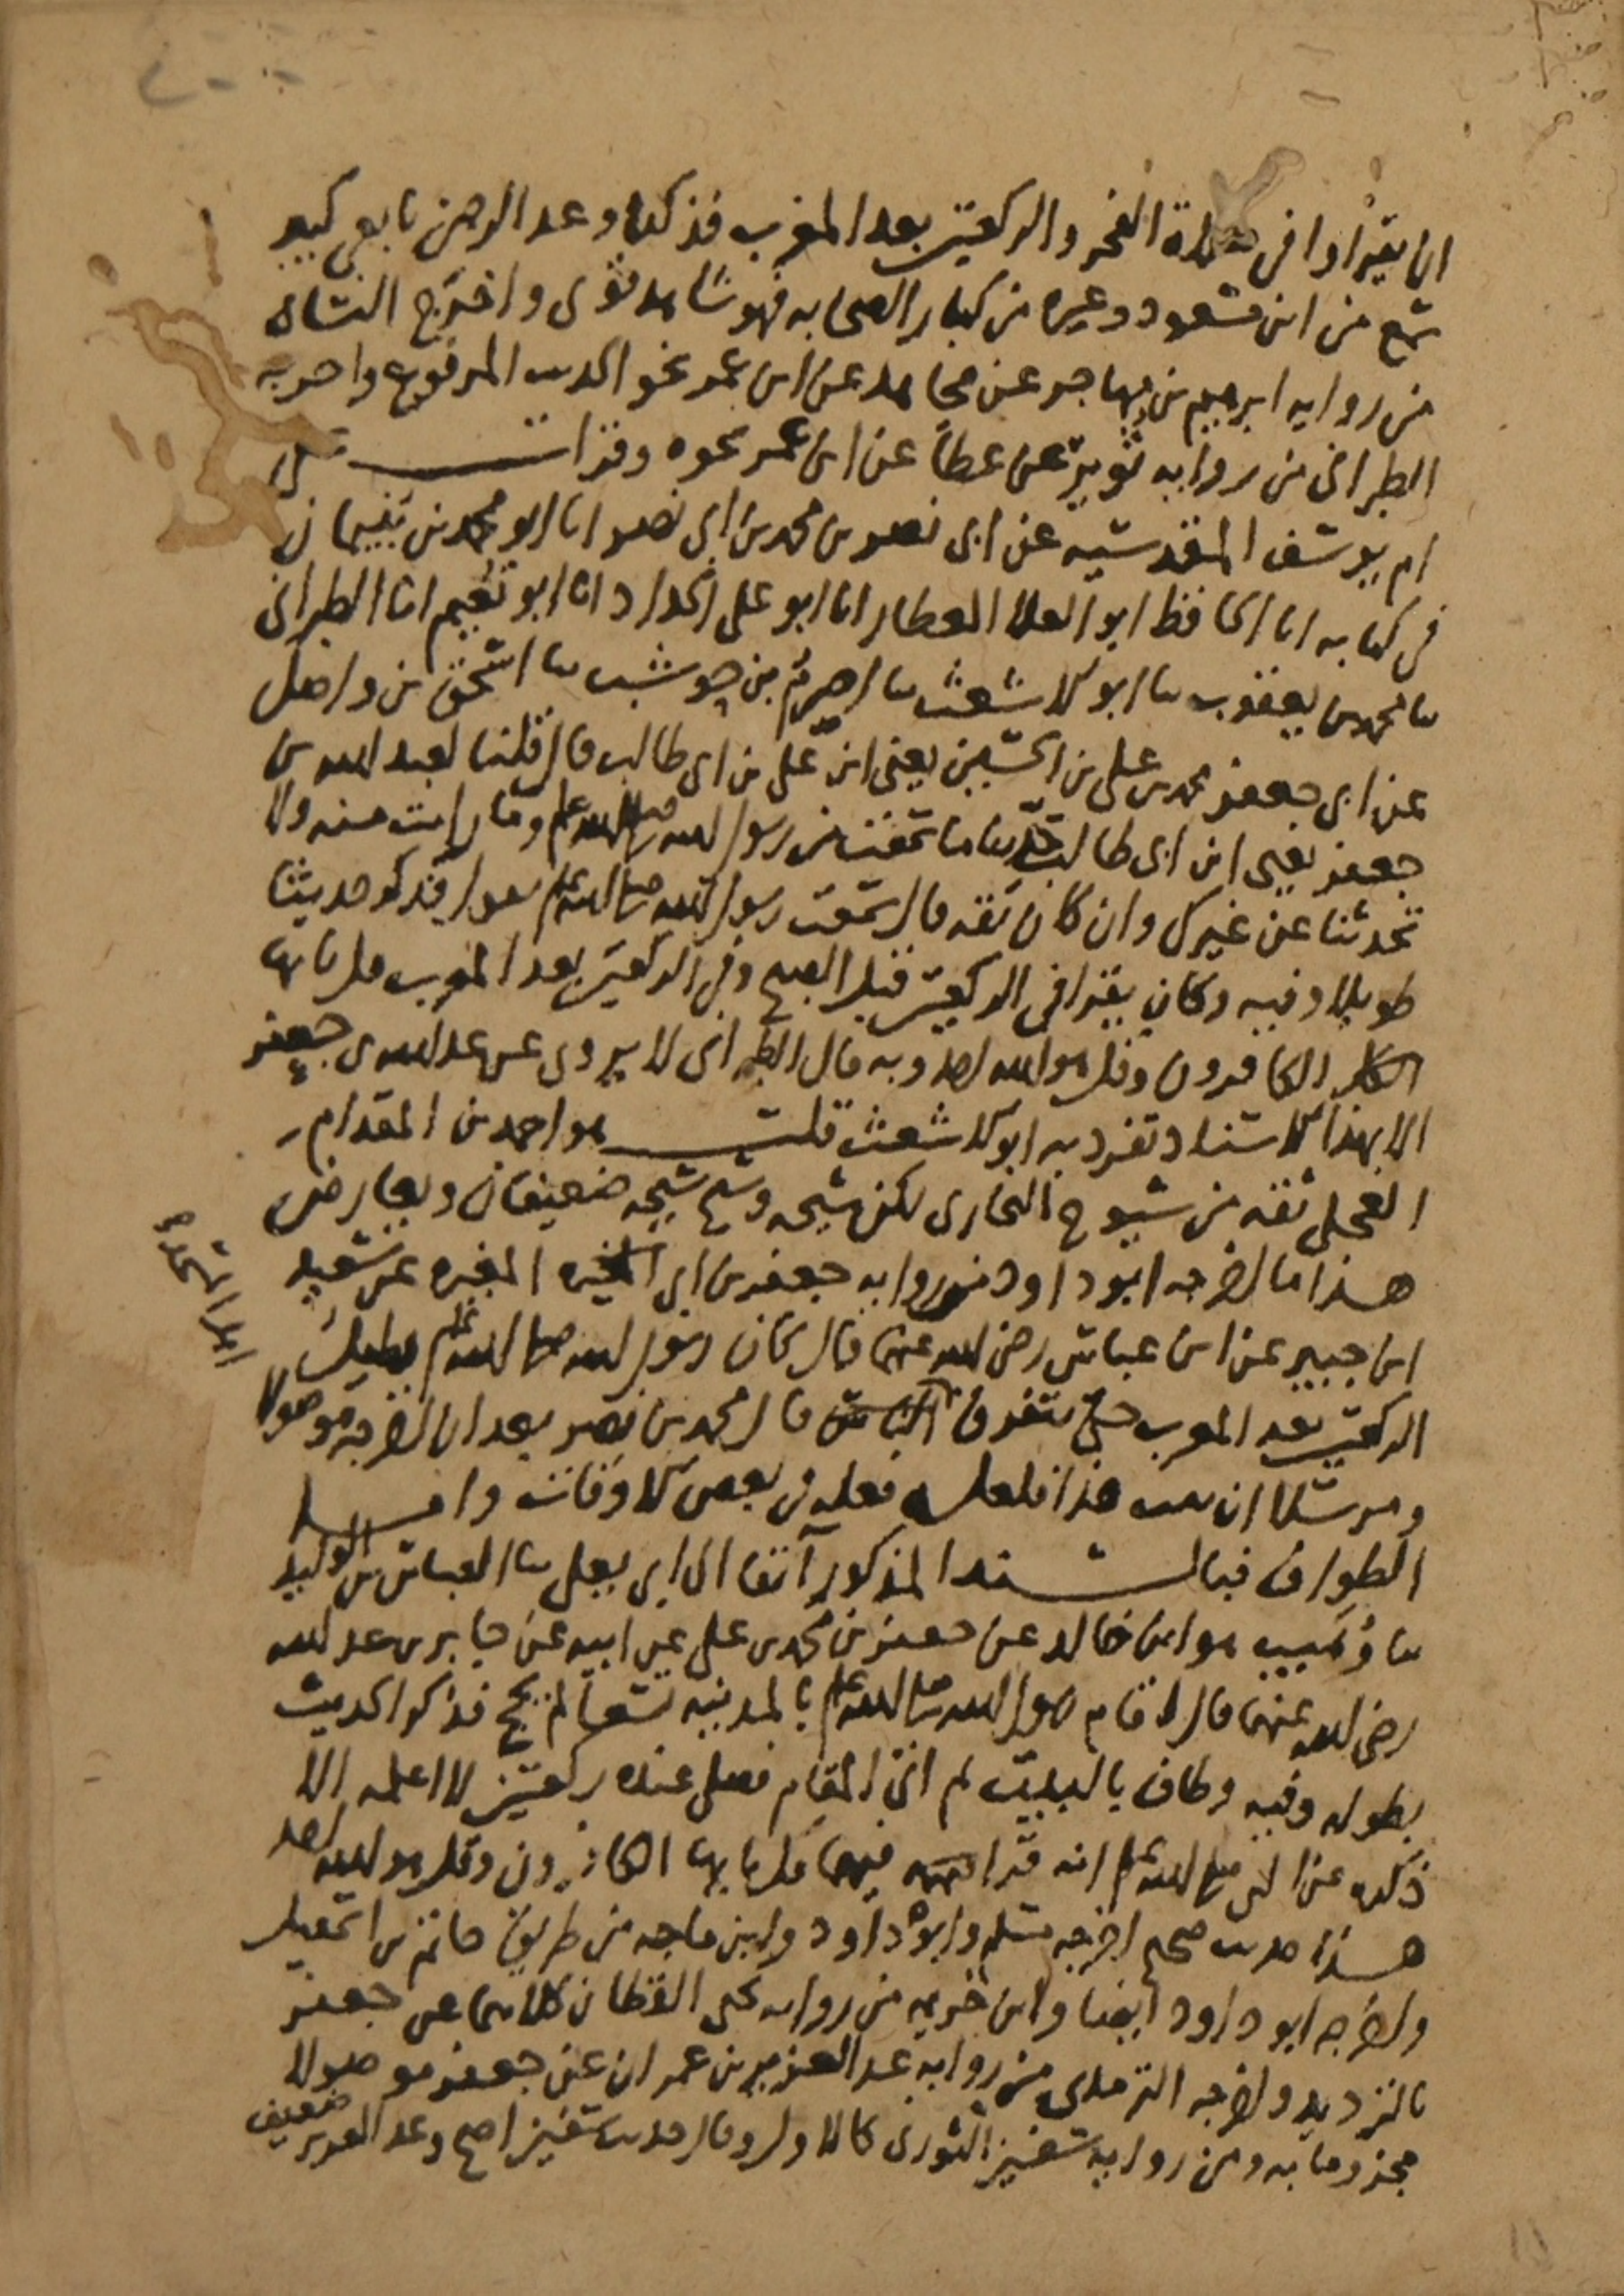 ان يقرأوا في صلاة الفجر والركعتين بعد المغرب فذكره وعبد الرحمن تابعي كبير
سمع من ابن مسعود وغيره من كبار الصحابه فهو شاهد قوى واخرج النسائ
من روايه ابرهيم بن مهاجر عن مجاهد عن ابن عمر نحو الحديث المرفوع واخرجه
الطبراني من روايه ثوير عن عطا عن ابن عمر نحوه وقرات على
ام يوسف المقدسيه عن ابي نصر بن محمد بن ابي نصر انا ابو محمد بن بنيمان
في كتابه انا الحافظ ابو العلا العطار انا ابو علي الحداد انا ابو نعيم انا الطبراني
ثنا محمد بن يعقوب ثنا ابو الاشعث ثنا اصرم بن حوشب ثنا اسحق بن واصل
عن ابي جعفر محمد بن علي بن الحسين يعني ابن علي بن ابي طالب قال قلنا لعبد الله بن
جعفر يعني ابن ابي طالب حدثنا ما سمعت من رسول الله صلى الله عليه وسلم وما رايت منه ولا
تحدثنا عن غيرك وان كان ثقه قال سمعت رسول الله صلى الله عليه وسلم يقول فذكر حديثا
طويلا وفيه وكان يقرا في الركعتين قبل الصبح وفي الركعتين بعد المغرب قل يا ايها
الكافرون وقل هو الله احد وبه قال الطبراني لا يروى عن عبد الله بن جعفر
الا بهذا الاسناد تفرد به ابو الاشعث قلت هو احمد بن المقدام
العجلي ثقه من شيوخ البخارى لكن شيخه وشيخ شيخه ضعيفان ويعارض
هذا ما اخرجه ابو داود من روايه جعفر بن ابي المغيره عن سعيد
ابن جبير عن ابن عباس رضي الله عنهما قال كان رسول الله صلى الله عليه وسلم يطيل
الركعتين بعد المغرب حتى يتفرق اهل المسجد قال محمد بن نصر بعد ان اخرجه موصولا
ومرسلا ان ثبت هذا فلعله فعله في بعض الاوقات واما
الطواف فبالسند المذكور آنفا الى ابي يعلى ثنا العباس بن الوليد
ثنا وهيب هو ابن خالد عن جعفر بن محمد بن علي عن ابيه عن جابر بن عبد الله
رضي الله عنهما قال اقام رسول الله صلى الله عليه وسلم بالمدينه تسعا لم يحج فذكر الحديث
بطوله وفيه وطاف بالبيت ثم اتى المقام فصلى عنده ركعتين لا اعلمه الا
ذكره عن النبي صلى الله عليه وسلم انه قرا فيهما قل يا ايها الكافرون وقل هو الله احد
هذا حديث صحيح اخرجه مسلم وابو داود وابن ماجه من طريق حاتم بن اسمعيل
واخرجه ابو داود ايضا وابن خزيمه من روايه يحيى القطان كلاهما عن جعفر
بالترديد واخرجه الترمذى من روايه عبد العزيز بن عمران عن جعفر موصولا
مجزوما به ومن روايه سفيان الثورى كالاول وقال حديث سفيان اصح وعبد العزيز ضعيف